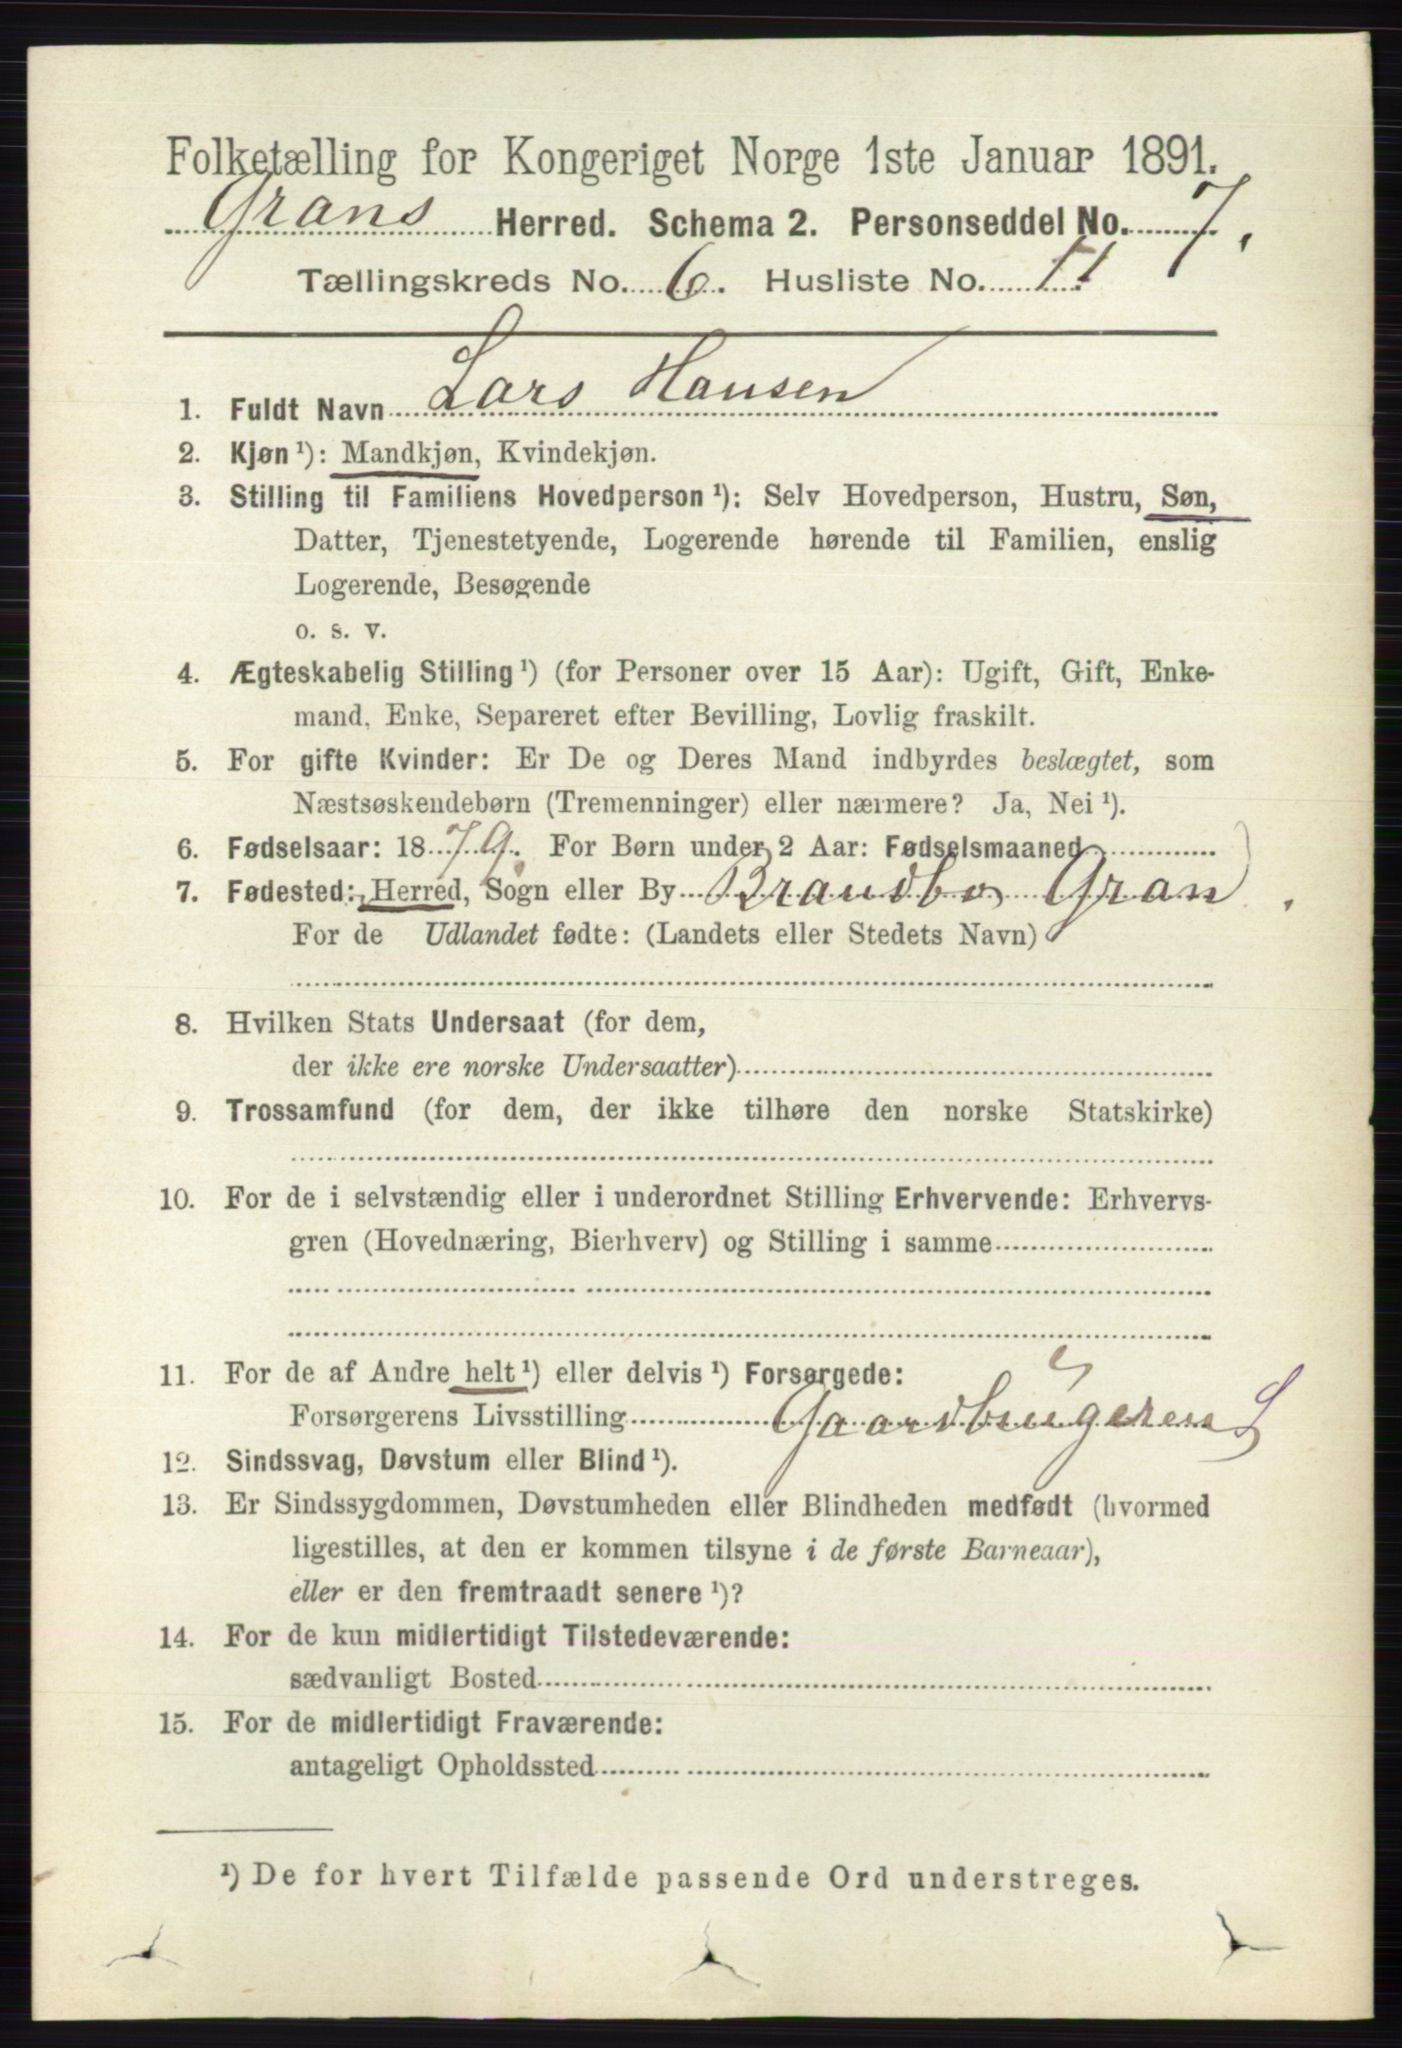 Folketælling for Kongeriget Norge 1ste Januar 1891.
Grans Herred. Schema 2. Personseddel No. 7.
Tællingskreds No. 6. Husliste No. 11
1. Fuldt Navn Lars Hansen
2. Kjøn ¹): Mandkjøn, Kvindekjøn.
3. Stilling til Familiens Hovedperson ¹): Selv Hovedperson, Hustru, Søn,
Datter, Tjenestetyende, Logerende hørende til Familien, enslig
Logerende, Besøgende
o. s. v.
4. Ægteskabelig Stilling ¹) (for Personer over 15 Aar): Ugift, Gift, Enke-
mand, Enke, Separeret efter Bevilling, Lovlig fraskilt.
5. For gifte Kvinder: Er De og Deres Mand indbyrdes beslægtet, som
Næstsøskendebørn (Tremenninger) eller nærmere? Ja, Nei ¹).
6. Fødselsaar: 1879. For Børn under 2 Aar: Fødselsmaaned
7. Fødested: Herred, Sogn eller By Brandbo Gran.
For de Udlandet fødte: (Landets eller Stedets Navn)
8. Hvilken Stats Undersaat (for dem,
der ikke ere norske Undersaatter)
9. Trossamfund (for dem, der ikke tilhøre den norske Statskirke)
10. For de i selvstændig eller i underordnet Stilling Erhvervende: Erhvervs-
gren (Hovednæring, Bierhverv) og Stilling i samme
11. For de af Andre helt ¹) eller delvis ¹) Forsørgede:
Forsørgerens Livsstilling Gaardbrugeren S
12. Sindssvag, Døvstum eller Blind ¹).
13. Er Sindssygdommen, Døvstumheden eller Blindheden medfødt (hvormed
ligestilles, at den er kommen tilsyne i de første Barneaar),
eller er den fremtraadt senere ¹)?
14. For de kun midlertidigt Tilstedeværende:
sædvanligt Bosted
15. For de midlertidigt Fraværende:
antageligt Opholdssted
¹) De for hvert Tilfælde passende Ord understreges.